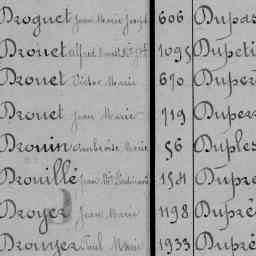 Droguet Jean Marie Joseph 606 Dupas
Drouet Alfred 1095 Dupeti
Drouet Victor Marie 670 Duper
Drouet Jean Marie 719 Duper
Drouin Ambroise Marie 56 Duples
Drouillé Jean Ferdinand 154 Dupré
Droyer Jean Marie 1198 Dupré
Drouyer Paul Marie 1933 Dupré